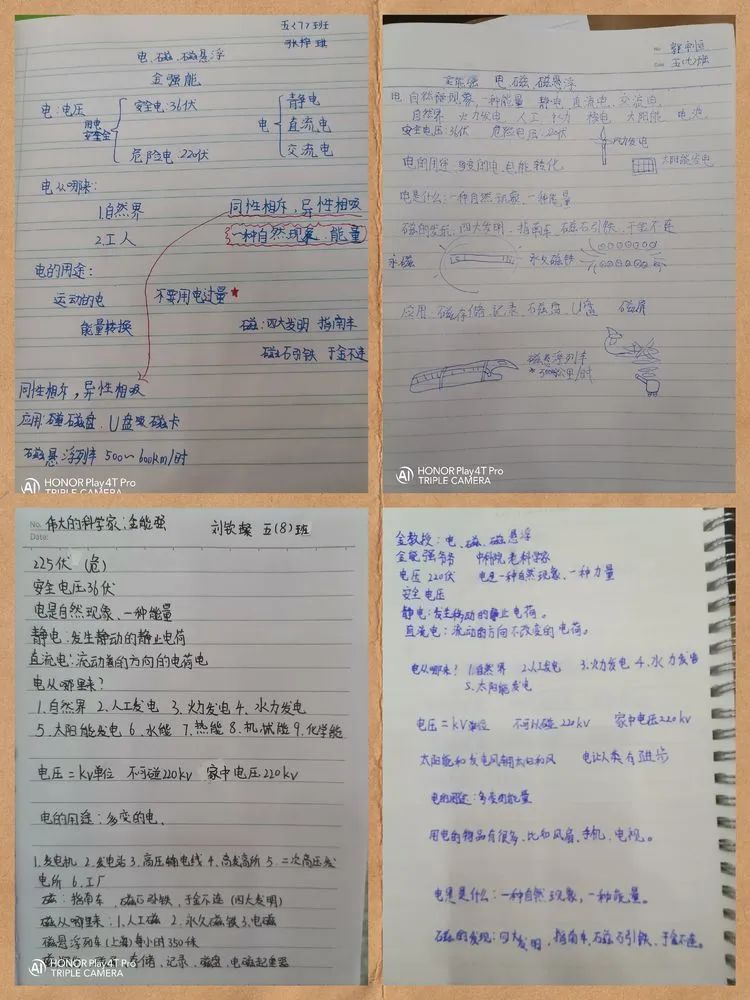 五(7)班
电、磁、磁悬浮
金强能
电:电压
用电安全
安全电:36伏
危险电:220伏
电
静电
直流电
交流电
电从哪来:
1.自然界
2.工人
同性相斥,异性相吸
一种自然现象、能量
电的用途:
运动的电
能量转换
不要用电过量★
磁:四大发明 指南车
磁石引铁 于金不连
同性相斥,异性相吸
U盘 磁卡
磁悬浮列车 500~600km/时
HONOR Play4T Pro
TRIPLE CAMERA
No
Date
电、磁、磁悬浮
电:自然种现象,一种能量 静电 直流电、交流电
自然界 火力发电 人工 水力 核电 太阳能 电池
安全电压:36伏 危险电压:220伏
风力发电
太阳能发电
电的用途:多变的电、电能转化
电是什么:一种自然现象、一种能量
磁的发现:四大发明、指南车、磁石引铁、于金不连
永磁
永久磁铁
应用:磁存储、记录、磁盘、U盘
磁悬浮列车
HONOR Play4T Pro
TRIPLE CAMERA
No. 伟大的科学家:金能强
刘钦粲 五(8)班
Date:
225伏 (危)
安全电压36伏
电是自然现象、一种能量
静电:发生静动的静止电荷
直流电:流动着的方向的电荷电
电从哪里来?
1.自然界 2.人工发电 3.火力发电 4.水力发电
5.太阳能发电 6.水能 7.热能 8.机械能 9.化学能
电压=kV单位 不可碰220kv 家中电压220kv
电的用途:多变的电、
1.发电机 2.发电站 3.高压输电线 4.高变高所 5.二次高压发
电所 6.工厂
磁:指南车、磁石引铁、于金不连(四大发明)
磁从哪里来:1.人工磁 2.永久磁铁 3.电磁
磁悬浮列车(上海)每小时350千
存储、记录、磁盘、电磁起重器
HONOR Play4T Pro
TRIPLE CAMERA
金教授:电、磁、磁悬浮
金能强爷爷 中科院老科学家
电压 220伏 电是一种自然现象、一种力量
安全电压
静电:发生移动的静止电荷。
直流电:流动的方向不改变的电荷。
电从哪来? 1.自然界 2.人工发电 3.火力发电 4.水力发电
5.太阳能发电
电压=kV单位 不可以碰220kv 家中电压220kv
太阳能和发电风 太白和风 电让人类有了进步
电的用途:多变的能量
用电的物品有很多,比如风扇、手机、电视。
电是是什么:一种自然现象,一种能量。
磁的发现:四大发明、指南车、磁石引铁、于金不连。